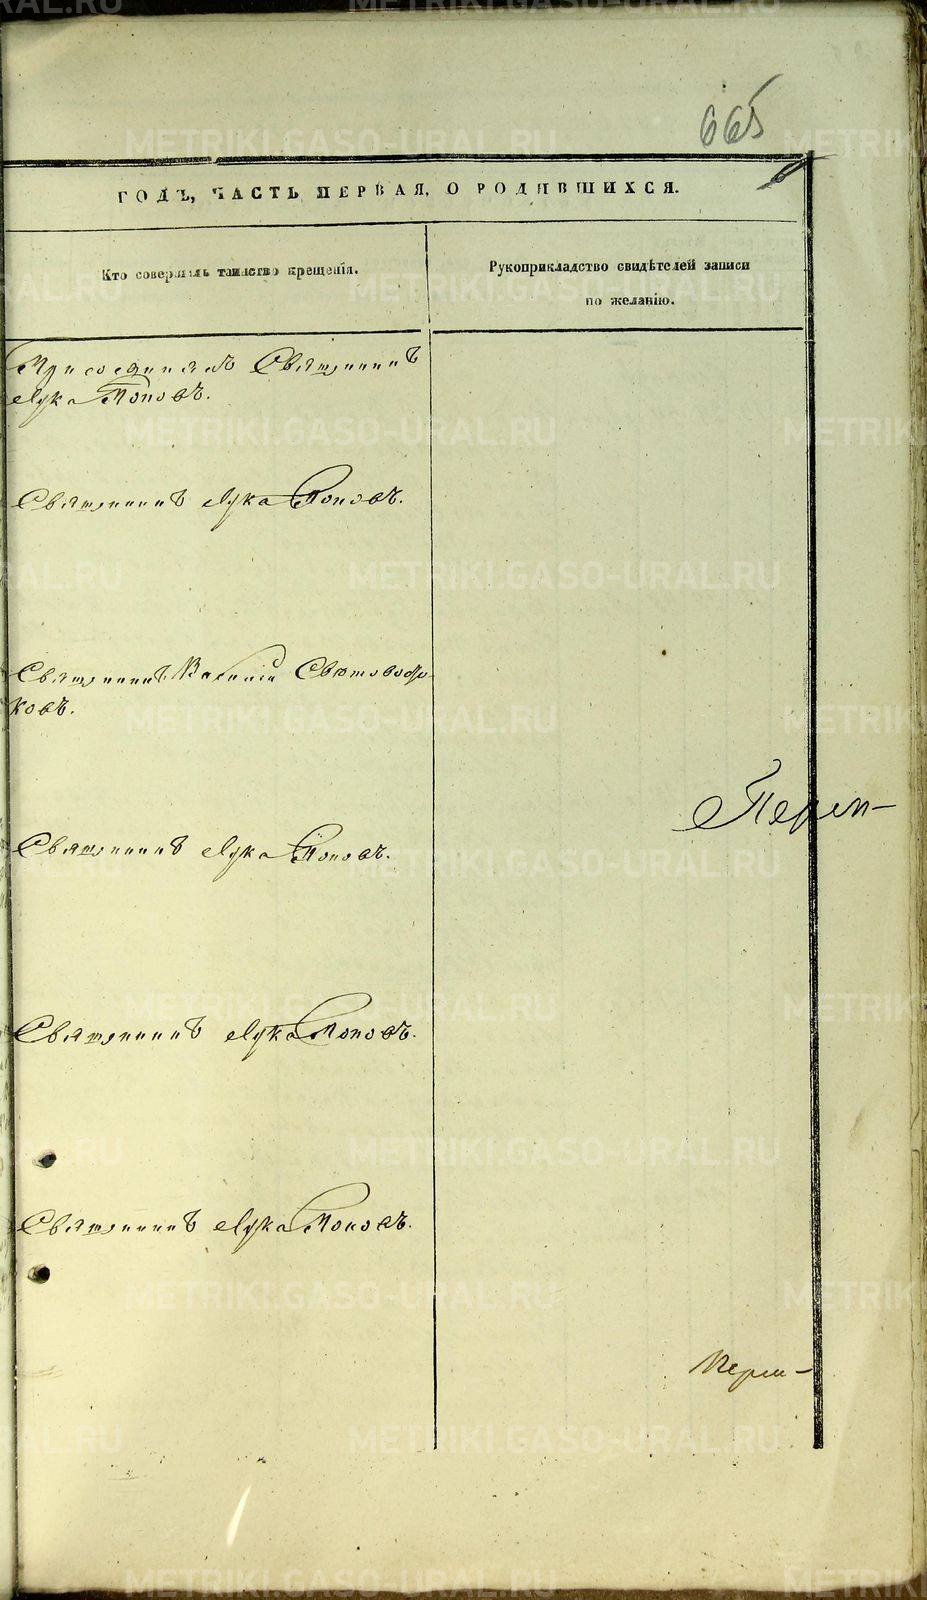 665
ГОДЪ, ЧАСТЬ ПЕРВАЯ, О РОДИВШИХСЯ.
Кто совершалъ таинство крещенія.
Рукоприкладство свидѣтелей записи
по желанію.
Присоединялъ Священникъ
Лука Поповъ.
Священникъ Лука Поповъ.
Священникъ Василій
ковъ.
Священникъ Лука Поповъ.
Священникъ Лука Поповъ.
Священникъ Лука Поповъ.
Перм-
Перм-
METRIKI.GASO-URAL.RU